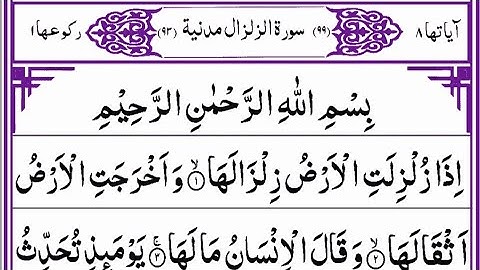 آیاتها ۸ (۹۹) سورة الزلزال مدنیة (۹۳) رکوعها ۱
بِسْمِ اللهِ الرَّحْمٰنِ الرَّحِيْمِ
اِذَا زُلْزِلَتِ الْاَرْضُ زِلْزَالَهَا ۙ‏﴿۱﴾ وَ اَخْرَجَتِ الْاَرْضُ
اَثْقَالَهَا ۙ‏﴿۲﴾ وَ قَالَ الْاِنْسَانُ مَا لَهَا ۚ‏﴿۳﴾ يَوْمَئِذٍ تُحَدِّثُ